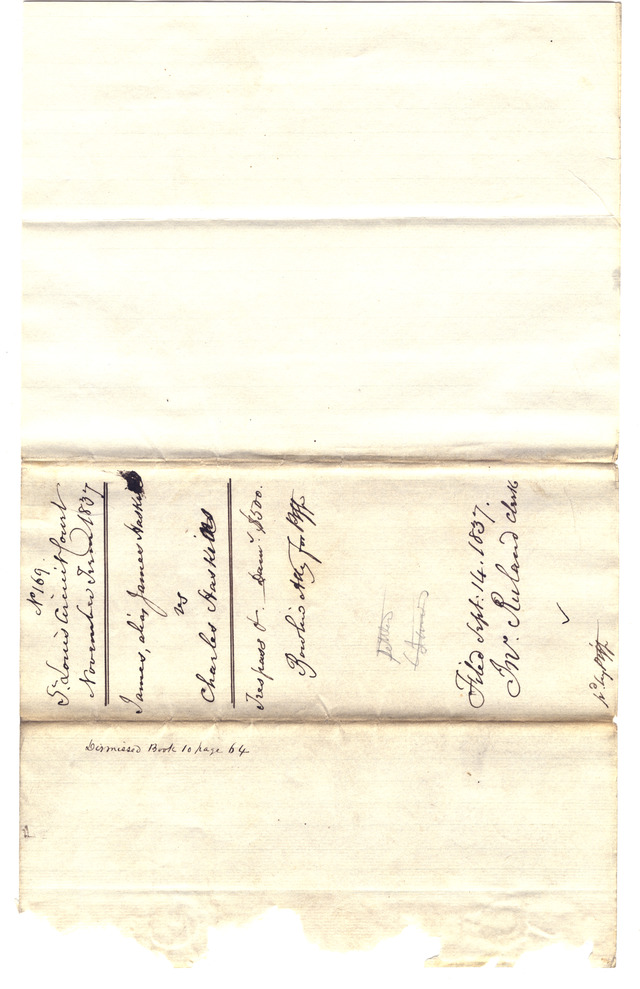 No 169.
St. Louis Circuit Court
November Term 1837
James, alias James Haskins
vs
Charles Haskins
Trespass &. Dam: $500.
Bowlin Atty for Plff
Filed Sept: 14. 1837.
Jno. Ruland Clerk
Dismissed Book 10 page 64